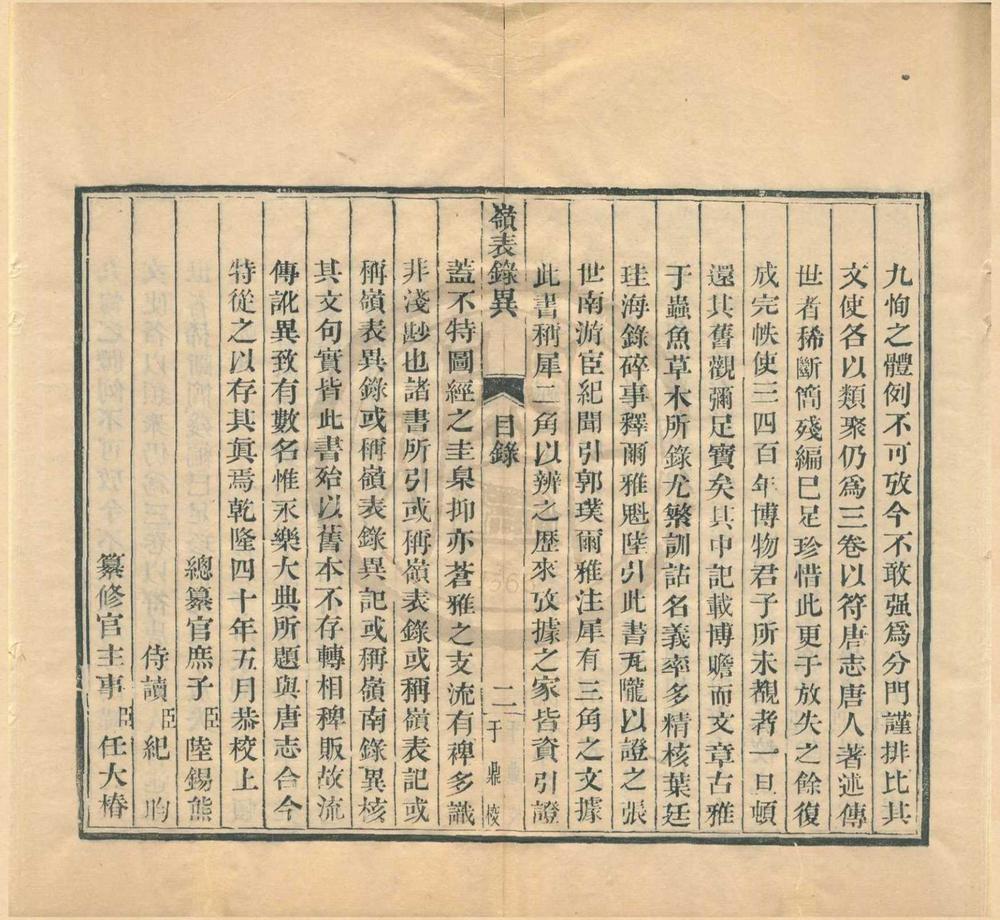 九恂之體例不可攷今不敢强爲分門謹排比其
文使各以類聚仍爲三卷以符唐志唐人著述傳
世者稀斷簡殘編已足珍惜此更于放失之餘復
成完帙使三四百年博物君子所未覩者一旦頓
還其舊觀彌足寶矣其中記載博贍而文章古雅
于蟲魚草木所錄尤繁訓詁名義率多精核葉廷
珪海錄碎事釋爾雅魁陸引此書瓦隴以證之張
世南游宦紀聞引郭璞爾雅注犀有三角之文據
此書稱犀二角以辨之歷來攷據之家皆資引證
嶺表錄異
目錄
二
于鼎校
蓋不特圖經之圭臬抑亦蒼雅之支流有裨多識
非淺尟也諸書所引或稱嶺表錄或稱嶺表記或
稱嶺表異錄或稱嶺表錄異記或稱嶺南錄異核
其文句實皆此書殆以舊本不存轉相稗販故流
傳訛異致有數名惟永樂大典所題與唐志合今
特從之以存其眞焉乾隆四十年五月恭校上
總纂官庶子臣陸錫熊
侍讀臣紀昀
纂修官主事臣任大椿